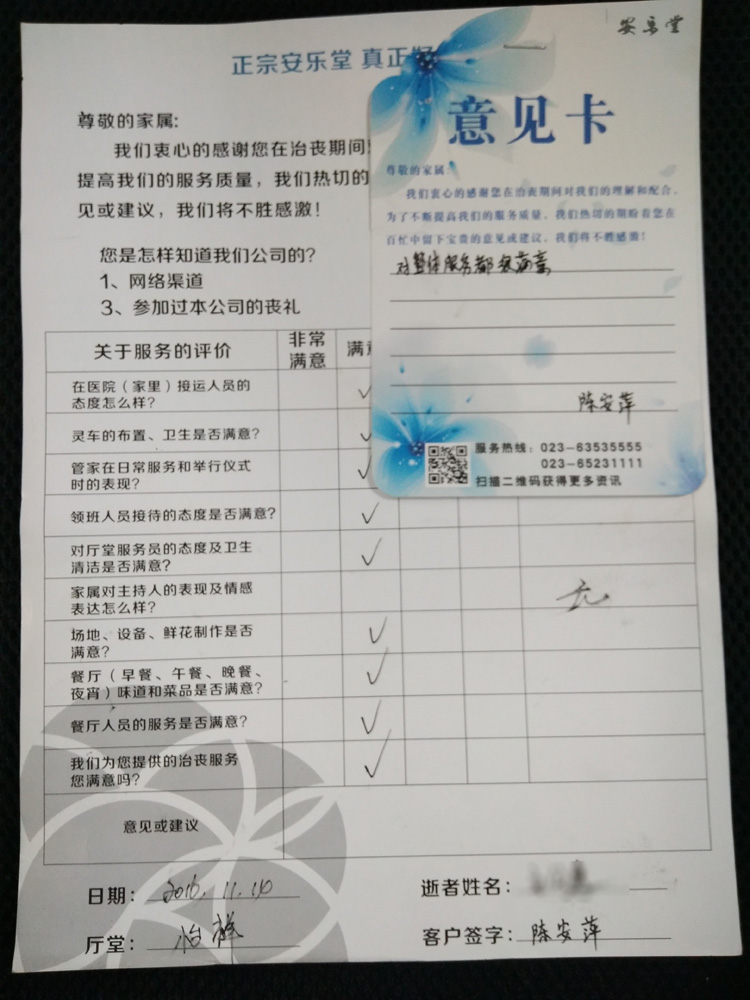 安乐堂
正宗安乐堂 真正
尊敬的家属:
我们衷心的感谢您在治丧期间
提高我们的服务质量，我们热切的
见或建议，我们将不胜感激！
您是怎样知道我们公司的?
1、网络渠道
3、参加过本公司的丧礼
意见卡
尊敬的家属:
我们衷心的感谢您在治丧期间对我们的理解和配合，
为了不断提高我们的服务质量，我们热切的期盼着您在
百忙中留下宝贵的意见或建议，我们将不胜感激！
对整体服务都很满意
陈安萍
服务热线：023-63535555
023-65231111
扫描二维码获得更多资讯
关于服务的评价
非常
满意
满意
在医院（家里）接运人员的
态度怎么样?
灵车的布置、卫生是否满意?
管家在日常服务和举行仪式
时的表现?
领班人员接待的态度是否满意?
对厅堂服务员的态度及卫生
清洁是否满意?
家属对主持人的表现及情感
表达怎么样?
无
场地、设备、鲜花制作是否
满意?
餐厅（早餐、午餐、晚餐、
夜宵）味道和菜品是否满意?
餐厅人员的服务是否满意?
我们为您提供的治丧服务
您满意吗?
意见或建议
日期: 2016.11.10
逝者姓名:
厅堂: 怡
客户签字: 陈安萍